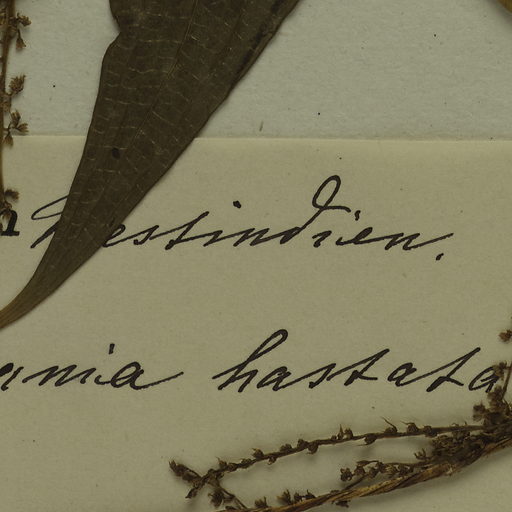 Westindien.
ania hastata